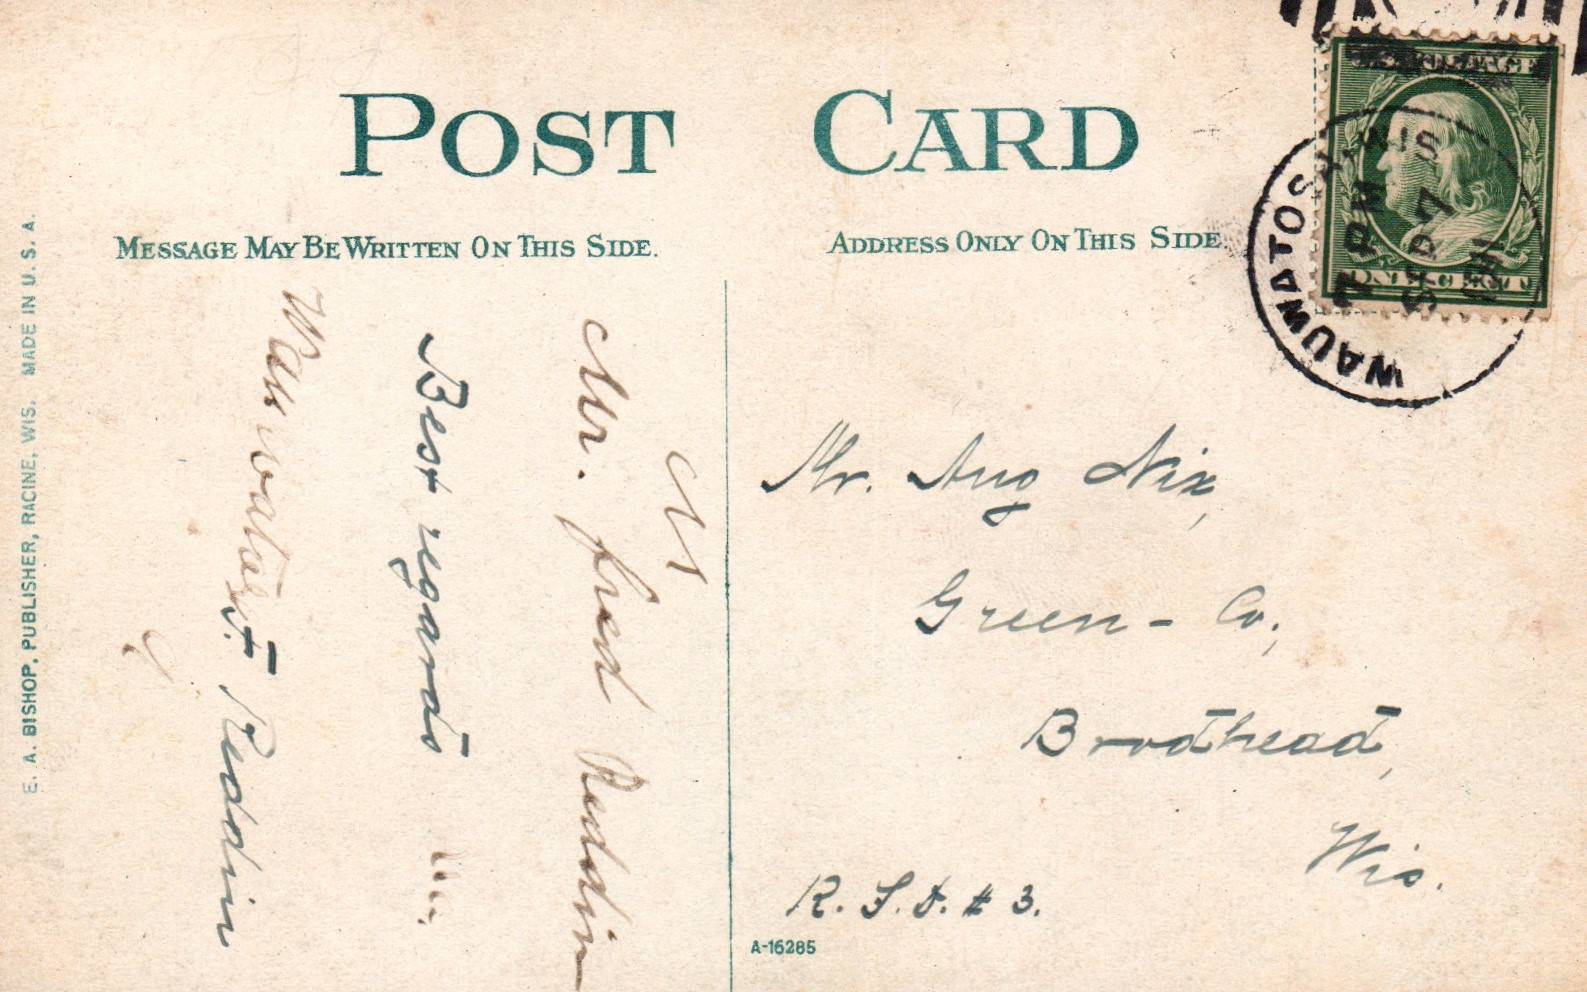 POST CARD
MESSAGE MAY BE WRITTEN ON THIS SIDE.
ADDRESS ONLY ON THIS SIDE.
E. A. BISHOP, PUBLISHER, RACINE, WIS. MADE IN U. S. A.
WAUWATOSA, WIS
SEP 7
1911
ONE CENT
Mr. fred Reddin
Best regards
F. Reddin
Mr. Aug Nix,
Green - Co.,
Brodhead,
Wis.
R. F. D. # 3.
A-16285